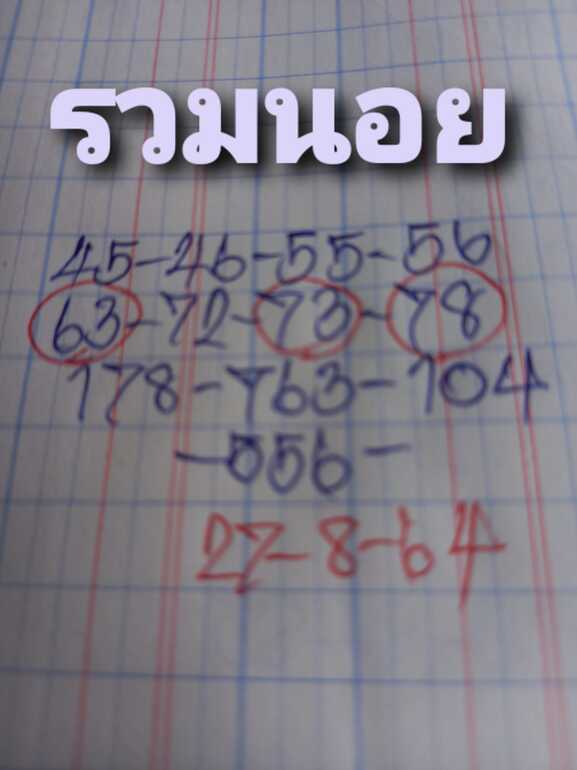 รวมนอย
45-46-55-56
63-72-73-78
178-763-104
-556-
27-8-64